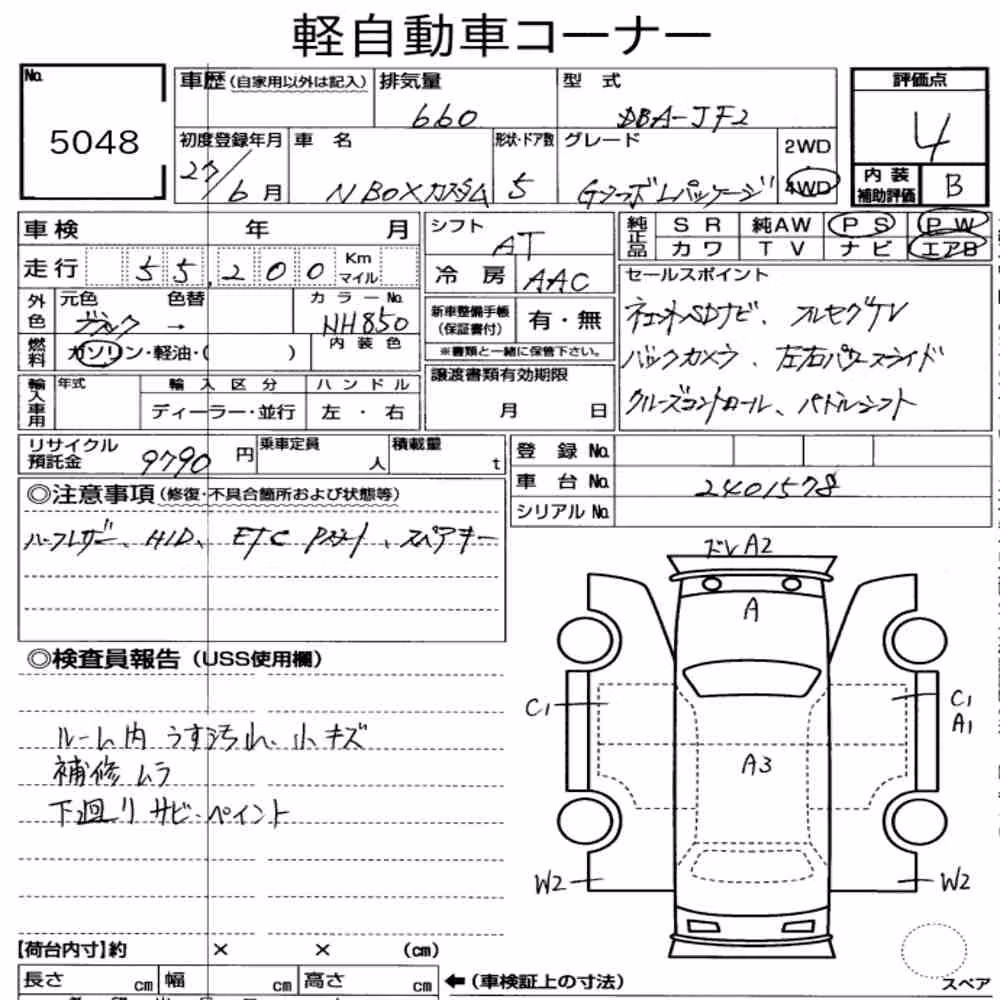 軽自動車コーナー
No. 5048
車歴(自家用以外は記入) 排気量 660 型式 DBA-JF2
評価点 4
初度登録年月 27/6月 車名 NBOXカスタム 形状・ドア数 5 グレード GターボLパッケージ 2WD 4WD
内装補助評価 B
車検 年 月
走行 55,200 Km マイル
外色 元色 ブラック 色替 → カラーNo. NH850
燃料 ガソリン・軽油・( ) 内装色
輸入車用 年式 輸入区分 ハンドル
ディーラー・並行 左・右
シフト AT
冷房 AAC
新車整備手帳(保証書付) 有・無
※書類と一緒に保管下さい。
譲渡書類有効期限
月 日
純正品 SR 純AW PS PW
カワ TV ナビ エアB
セールスポイント
SDナビ、フルセグTV
バックカメラ、左右パワースライド
クルーズコントロール、パドルシフト
リサイクル預託金 9790円 乗車定員 人 積載量 t
登録No.
車台No. 2401578
シリアルNo.
◎注意事項(修復・不具合箇所および状態等)
ハーフレザー、HID、ETC Pスタート、スペアキー
◎検査員報告(USS使用欄)
ルーム内 うす汚れ、小キズ
補修ムラ
下廻りサビ・ペイント
A2
A
C1
C1
A1
A3
W2
W2
【荷台内寸】約 × × (cm)
長さ cm 幅 cm 高さ cm ←(車検証上の寸法)
スペア